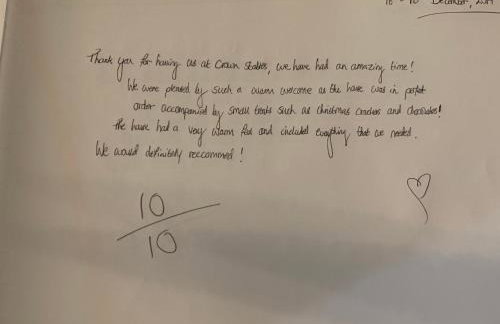 December, 2019
Thank you for having us at Crown Stables, we have had an amazing time!
We were pleased by such a warm welcome as the house was in perfect
order accompanied by small treats such as Christmas crackers and chocolates!
The house had a very warm feel and included everything that we needed.
We would definitely reccommend!
10
10